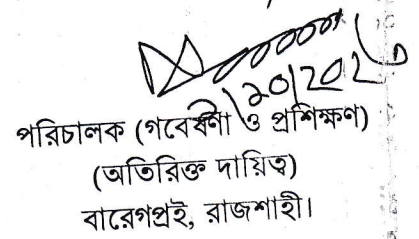 পরিচালক (গবেষণা ও প্রশিক্ষণ)
(অতিরিক্ত দায়িত্ব)
বারেগপ্রই, রাজশাহী।